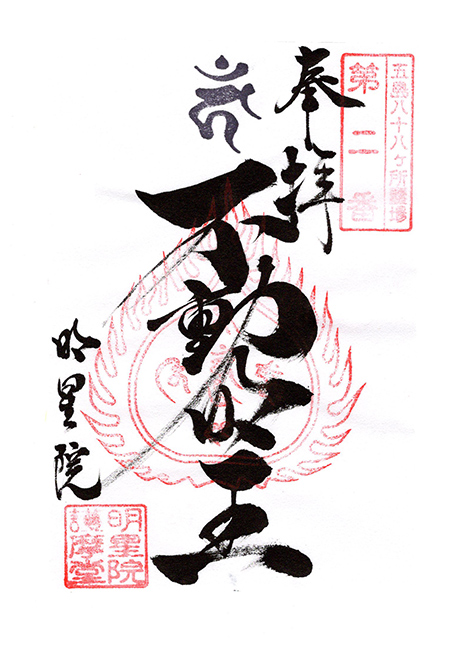 五島八十八ヶ所霊場
第二番
奉拝
不動明王
明星院
明星院
護摩堂